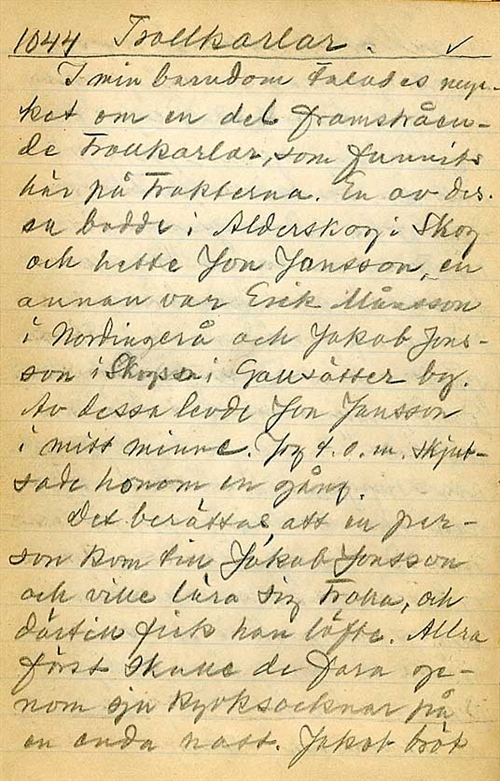 1044 Trollkarlar. ✓
I min barndom talades myc-
ket om en del framståen-
de trollkarlar, som funnits
här på trakterna. En av des-
sa bodde i Alderskog i Skog
och hette Jon Jansson, en
annan var Erik Månsson
i Nordingerå och Jakob Jons-
son i i Gallsätter by.
Av dessa levde Jon Jansson
i mitt minne. Jag t.o.m. skjut-
sade honom en gång.
Det berättas att en per-
son kom till Jakob Jonsson
och ville lära sig trolla, och
därtill fick han löfte. Allra
först skulle de fara ge-
nom sju kyrksocknar på
en enda natt. Jakob bröt